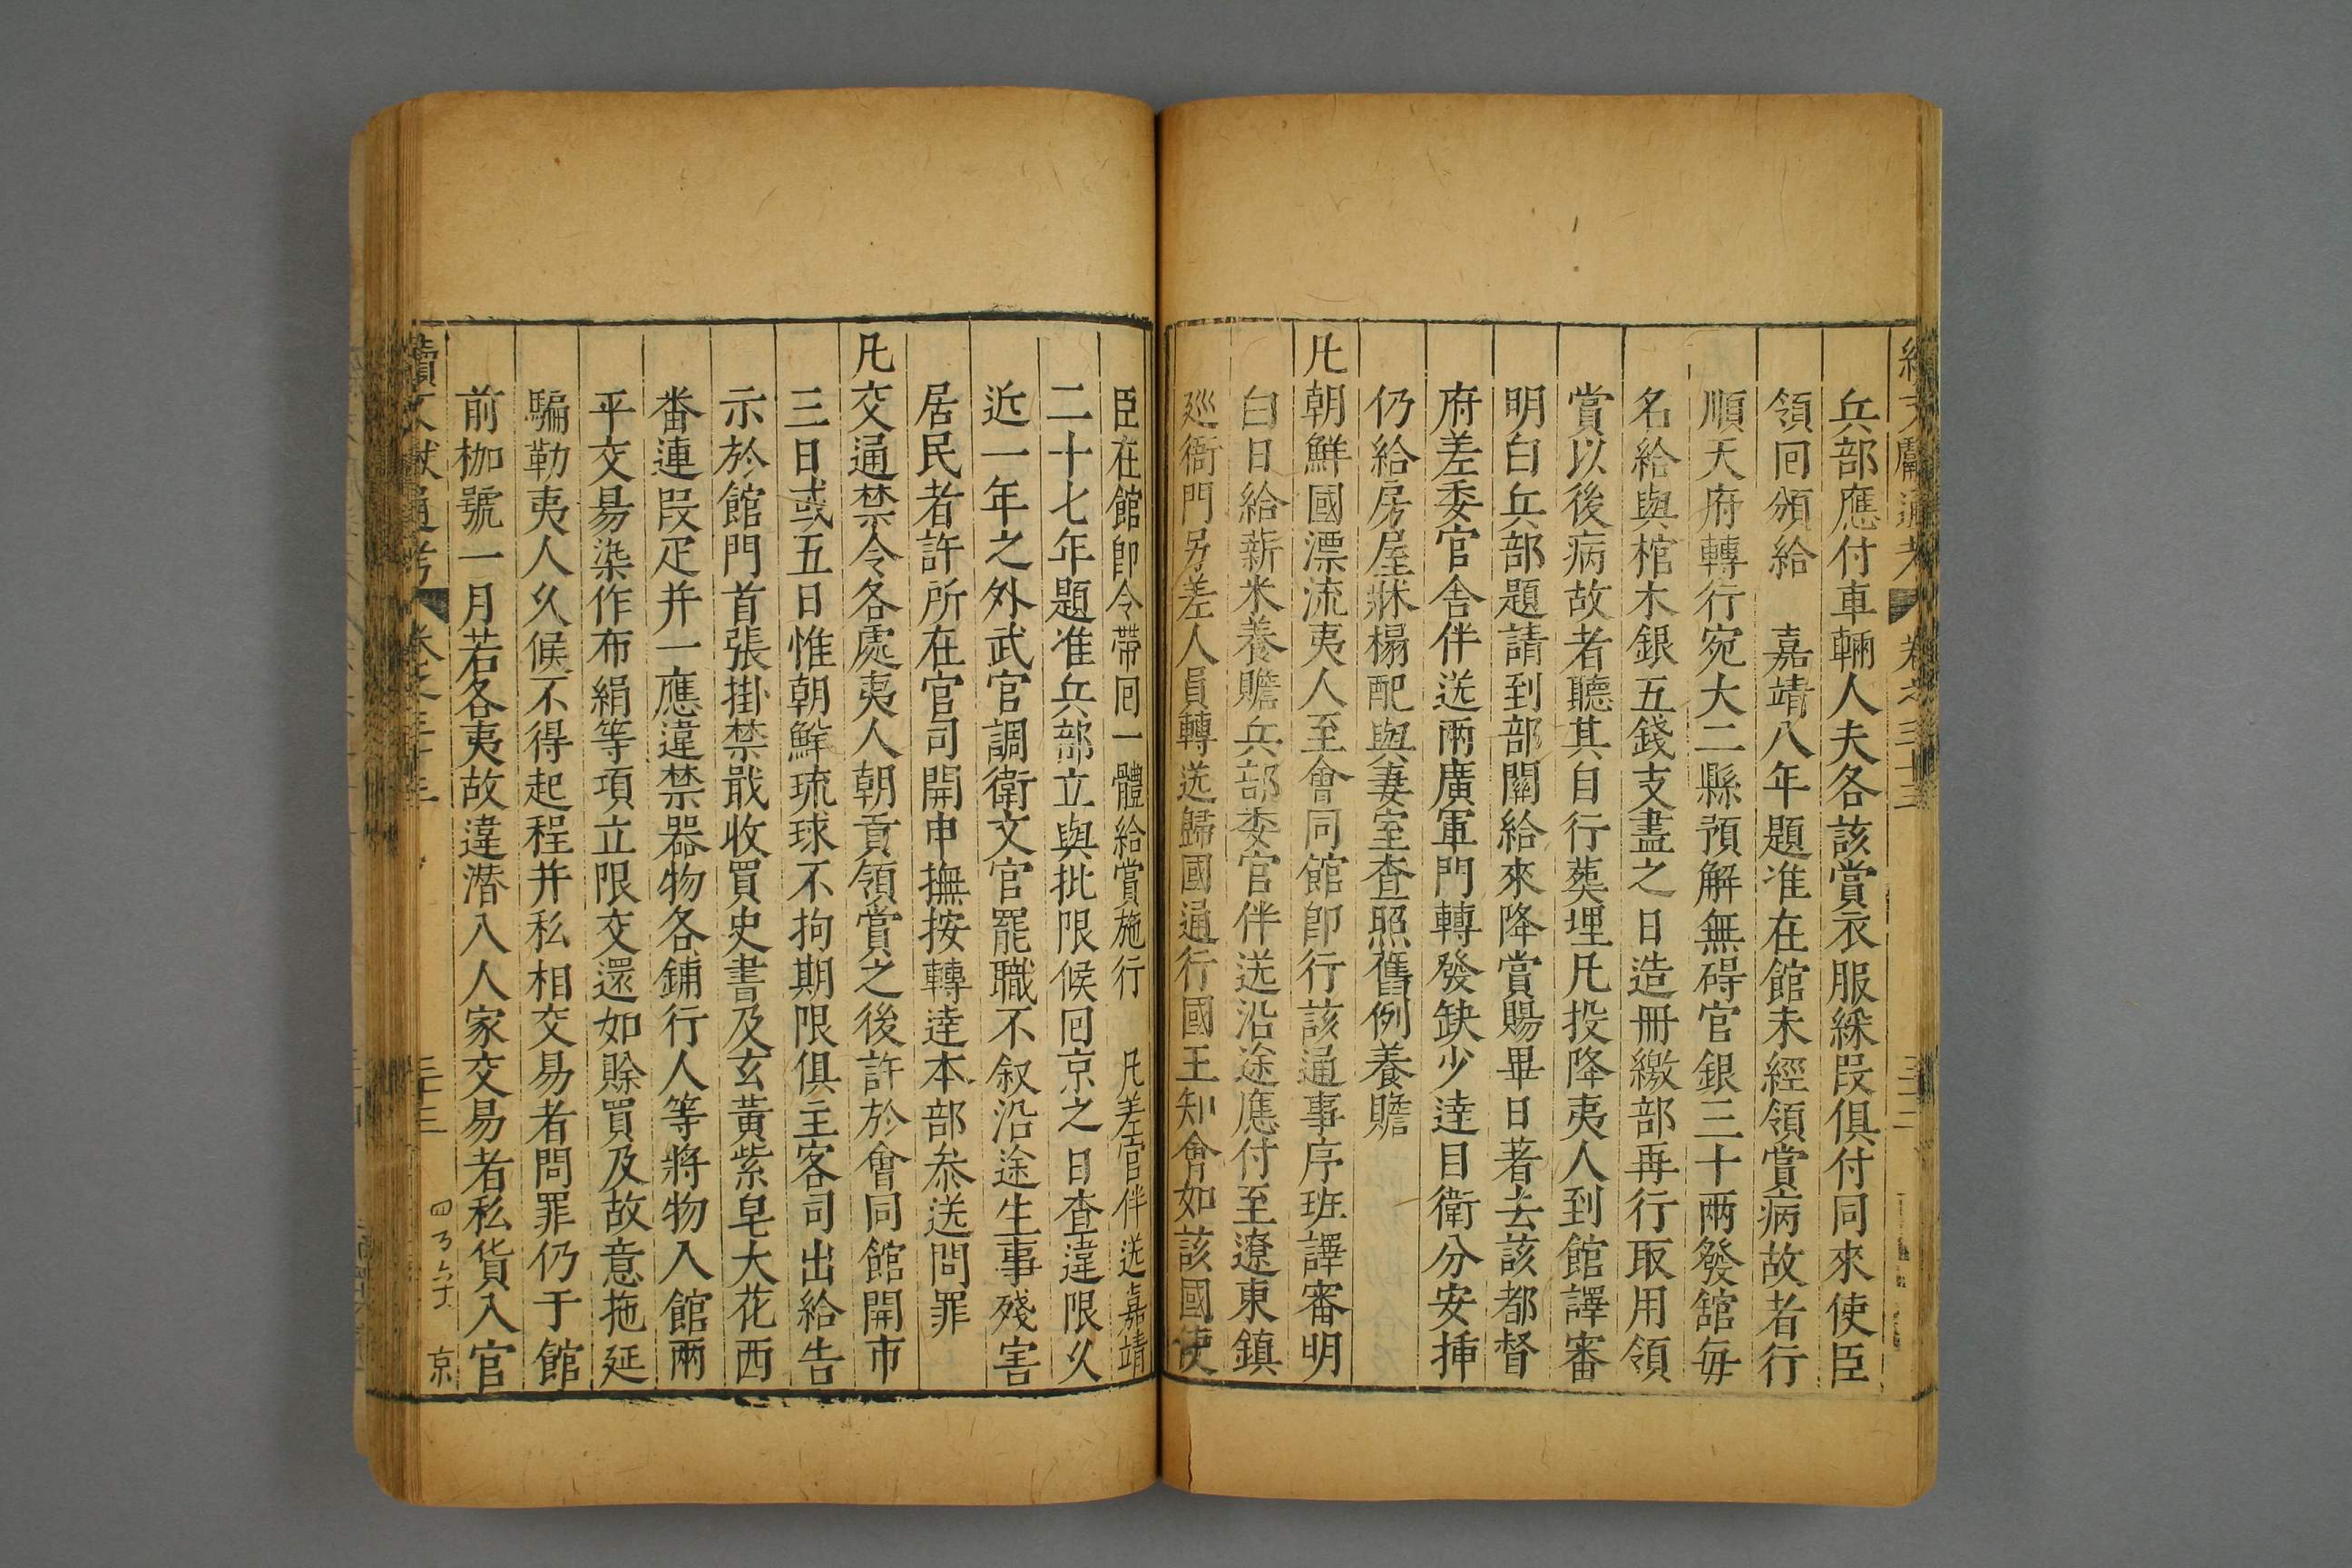 續文獻通考 卷之三十三
兵部應付車輛人夫各該賞衣服綵段俱付同來使臣
領囘頒給 嘉靖八年題准在館未經領賞病故者行
順天府轉行宛大二縣預解無碍官銀三十兩發舘每
名給與棺木銀五錢支盡之日造冊繳部再行取用領
賞以後病故者聽其自行葬埋凡投降夷人到館譯審
明白兵部題請到部關給來降賞賜畢日著去該都督
府差委官舍伴送兩廣軍門轉發缺少達目衛分安揷
仍給房屋牀榻配與妻室查照舊例養贍
凡朝鮮國漂流夷人至會同館卽行該通事序班譯審明
白日給薪米養贍兵部委官伴送沿途應付至遼東鎮
廵衙門另差人員轉送歸國通行國王知會如該國使
臣在館卽令帶囘一體給賞施行 凡差官伴送嘉靖
二十七年題准兵部立與批限候囘京之日查違限久
近一年之外武官調衛文官罷職不叙沿途生事殘害
居民者許所在官司開申撫按轉達本部叅送問罪
凡交通禁令各處夷人朝貢領賞之後許於會同館開市
三日或五日惟朝鮮琉球不拘期限俱主客司出給告
示於館門首張掛禁戢收買史書及玄黃紫皂大花西
番連段疋幷一應違禁器物各鋪行人等將物入館兩
平交易染作布絹等項立限交還如賒買及故意拖延
騙勒夷人久候不得起程幷私相交易者問罪仍于館
前枷號一月若各夷故違潛入人家交易者私貨入官
續文獻通考 卷之三十三 三十三 京